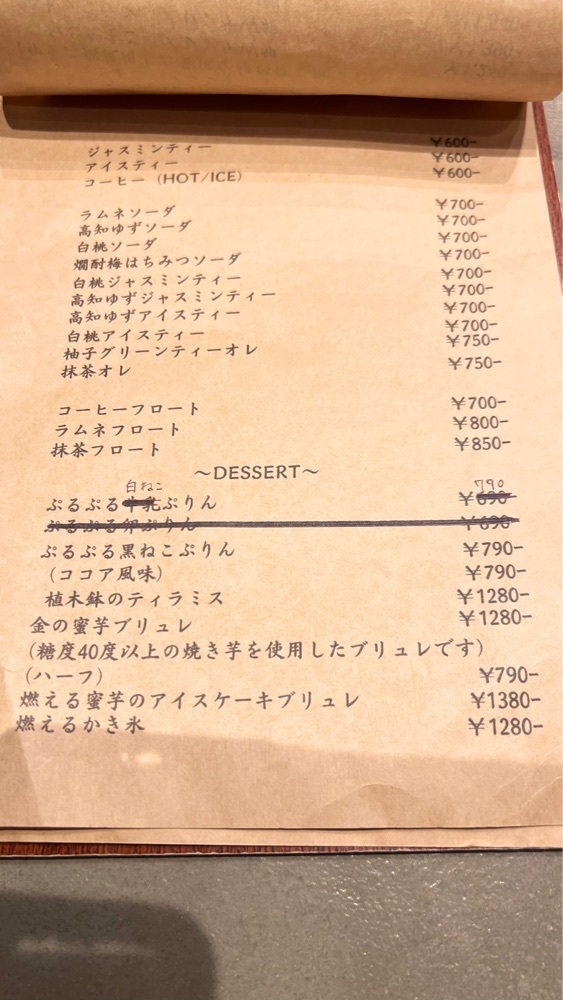 ジャスミンティー ¥600-
アイスティー ¥600-
コーヒー (HOT/ICE) ¥600-
ラムネソーダ ¥700-
高知ゆずソーダ ¥700-
白桃ソーダ ¥700-
燗酎梅はちみつソーダ ¥700-
白桃ジャスミンティー ¥700-
高知ゆずジャスミンティー ¥700-
高知ゆずアイスティー ¥700-
白桃アイスティー ¥700-
柚子グリーンティーオレ ¥750-
抹茶オレ ¥750-
コーヒーフロート ¥700-
ラムネフロート ¥800-
抹茶フロート ¥850-
～DESSERT～
白ねこ 790
ぷるぷる牛乳ぷりん ¥690-
ぷるぷる卵ぷりん ¥690-
ぷるぷる黒ねこぷりん ¥790-
(ココア風味) ¥790-
植木鉢のティラミス ¥1280-
金の蜜芋ブリュレ ¥1280-
(糖度40度以上の焼き芋を使用したブリュレです)
(ハーフ) ¥790-
燃える蜜芋のアイスケーキブリュレ ¥1380-
燃えるかき氷 ¥1280-